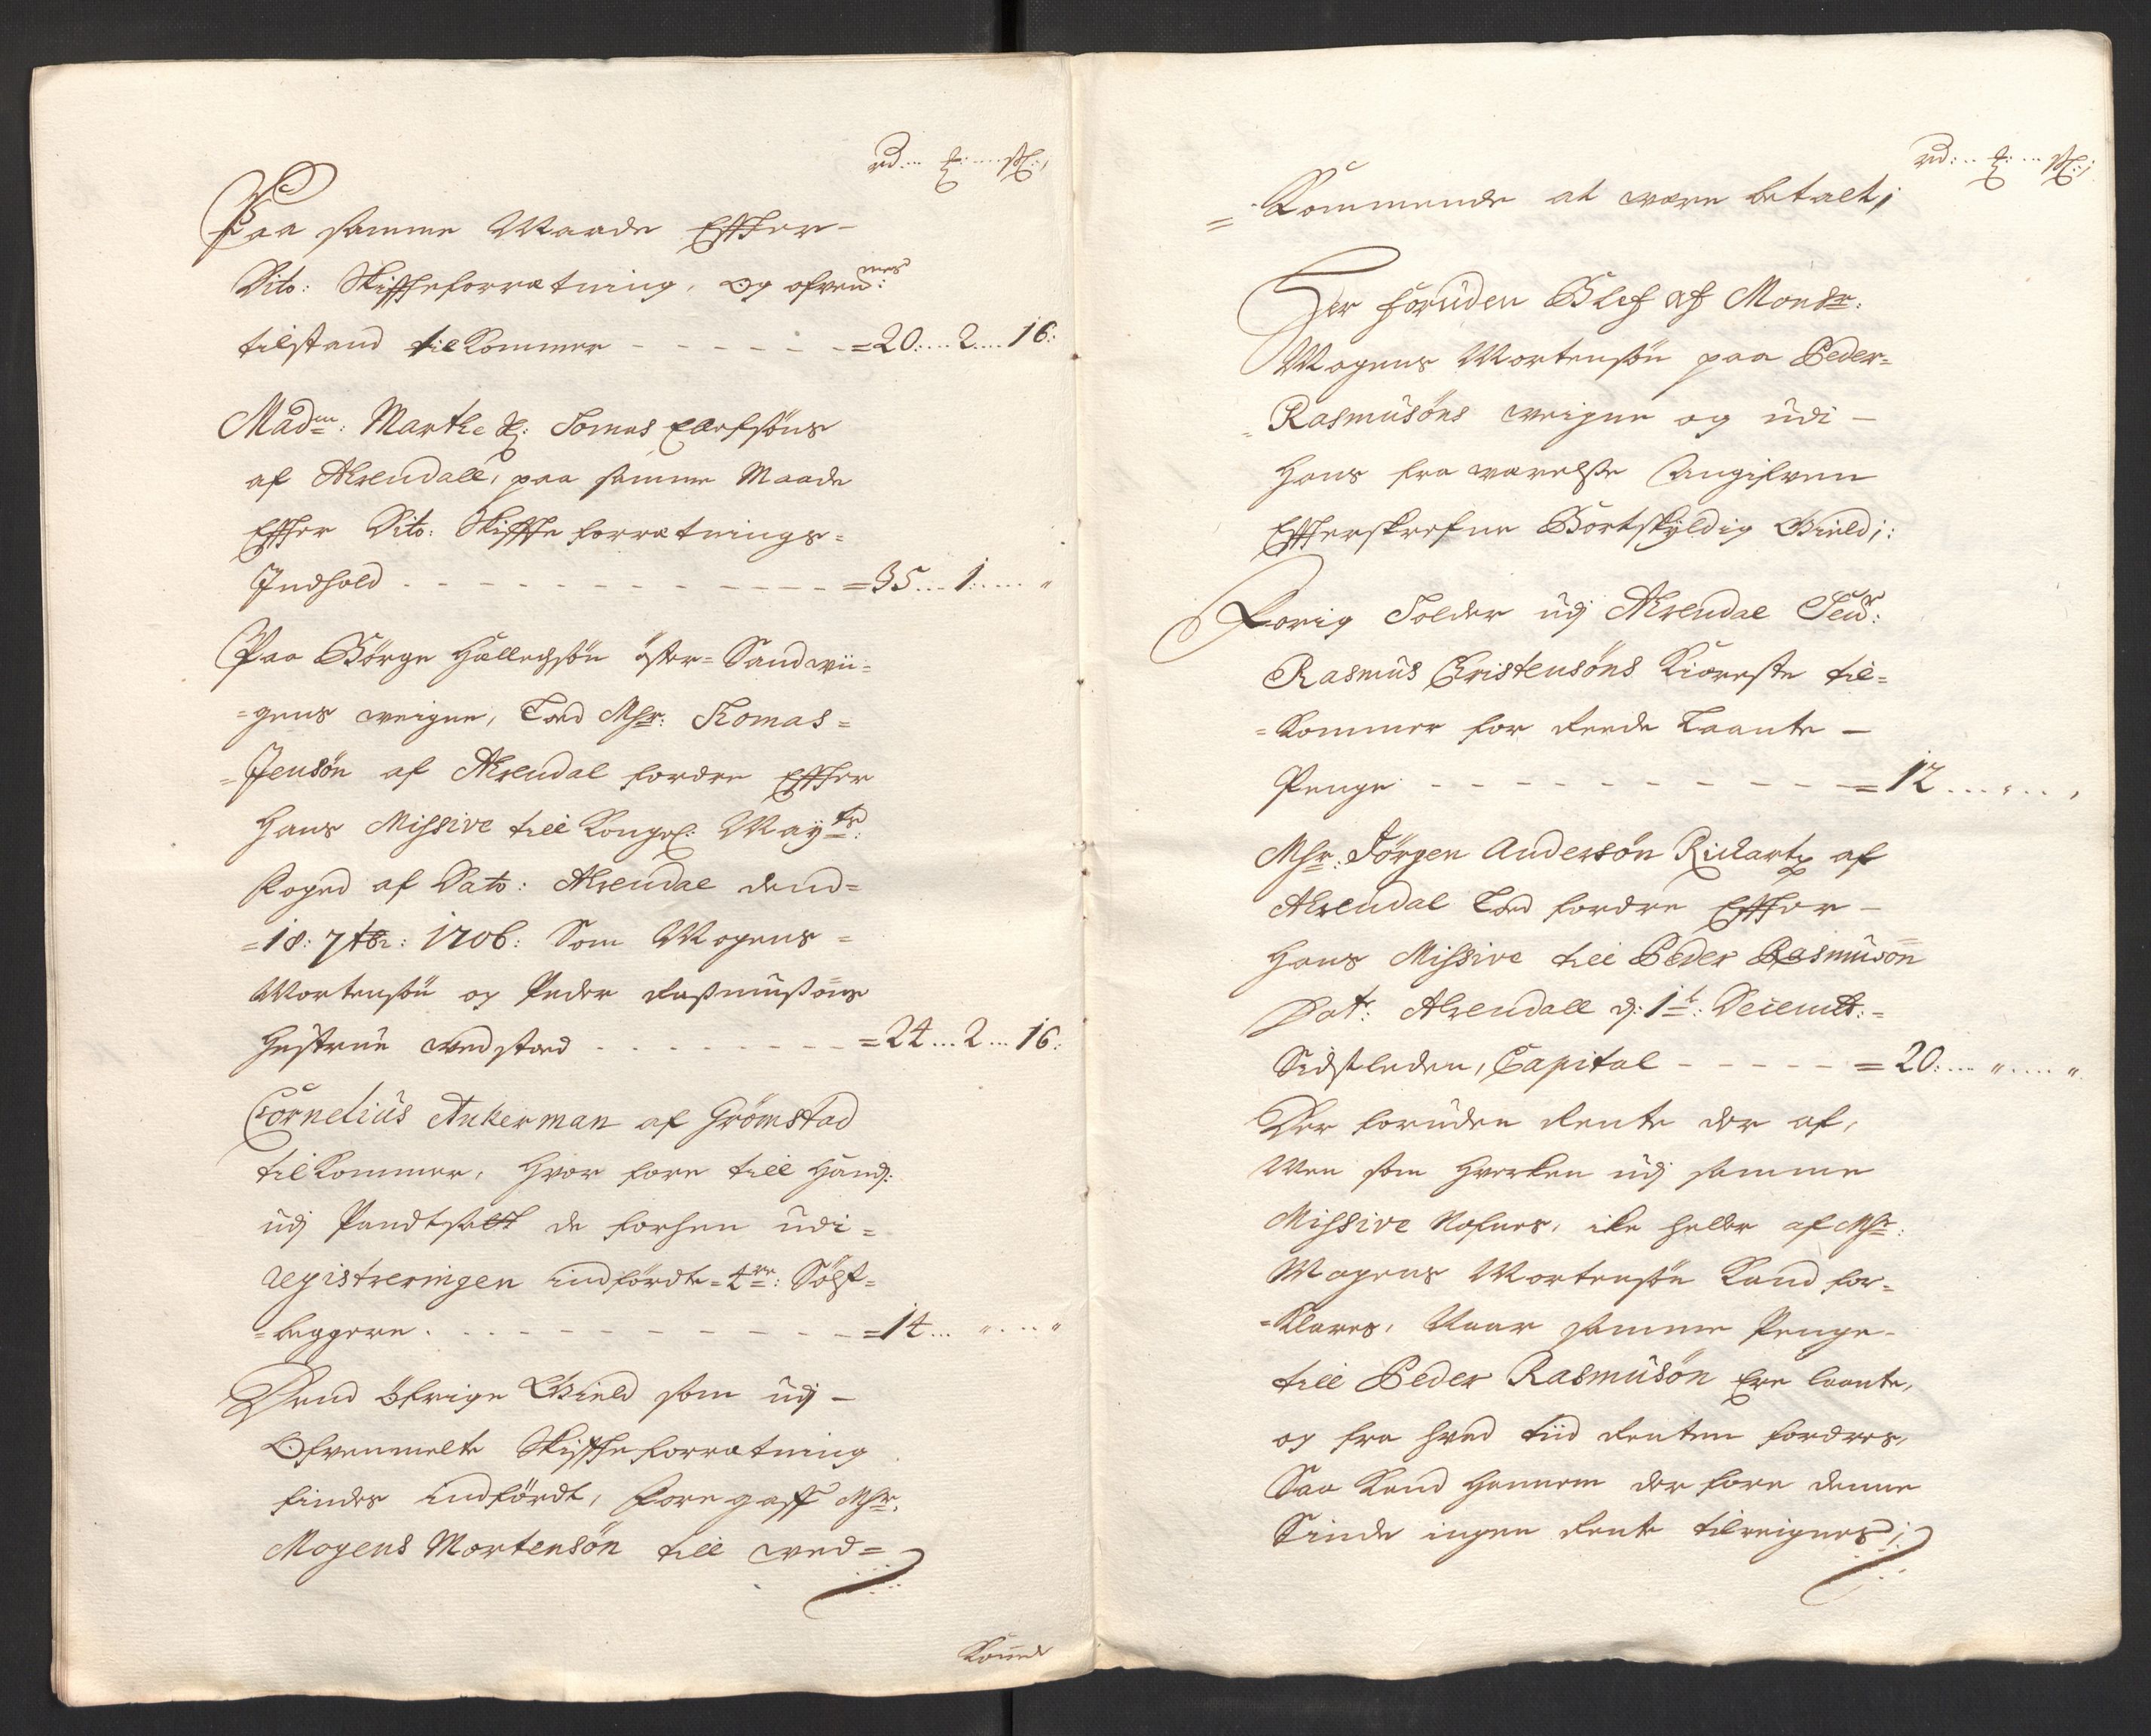 rd: .. ℔: .... ſk:
Paa samme Maade Effter-
Dito: Skiffteforretning, og ofven:mes
tilstand tilkommer - - - - - - =20....2....16:
Madm: Marthe Sl: Tomas Ellefsøns
af Ahrendall, paa samme Maade
Effter Dito: Skiffte forretnings=
Indhold - - - - - - - - - - - =35....1:.... "
Paa Børge Hallechsøn øster= Sandwii=
=gens weigne, Loed Mhr: Thomas=
=Jensøn af Ahrendal fordre Effter
Hans Missive till Kongel: Mayts:
Foged af Dato: Ahrendal dend=
=18: 7tbr: 1706: Som Mogens=
Mortensøn og Peder Rasmusøns
Hustrue wedstoed - - - - - - - =24...2...16:
Cornelius Ankerman af Grømstad
tilkommer, hvor fore till Hand:
udj Pandtsatt de forhen udi=
registreringen indførdte=4re: Sølf=
=beggere. - - - - - - - - - - =14... " .... "
Dend øfrige Gield som udj-
Ofvenmelte Skiffteforretning
findes indført, fore gaff Mhr:
Mogens Mortensøn till wed=
Komde
rd: .. ℔: ... ſk:
= Kommende at were betalt;
Her foruden Blef af Monsr:
Mogens Mortensøn paa Peder=
=Rasmusøns weigne og udi-
Hans fra werelse Angifven
Effterskrefne Bortskyldig Gield;:
Forig Tolder udj Ahrendal Seigr:
Rasmus Christensøns Kiereste til=
=kommer for Reede Laante-
Penge - - - - - - - - - - - =12.... " ... "
Mhr: Jørgen Andersøn Rickartz af
Ahrendal Loed fordre Effter-
Hans Missive till Peder Rasmusøn
Dat: Ahrendall d: 1te: Decemb:=
Sidstleden, Capital - - - - - =20:... " .... "
Der foruden Rente der af,
Men som hverken udj samme
Missive Nefnes, ike heller af Mhr:
Mogens Mortensøn Kand for=
=klares, Naar samme Penge-
till Peder Rasmusøn Ere laante,
og fra hvad tiid Renten fordres,
Saa Kand Hannem der fore denne
Sinde ingen Rente tilreignes;